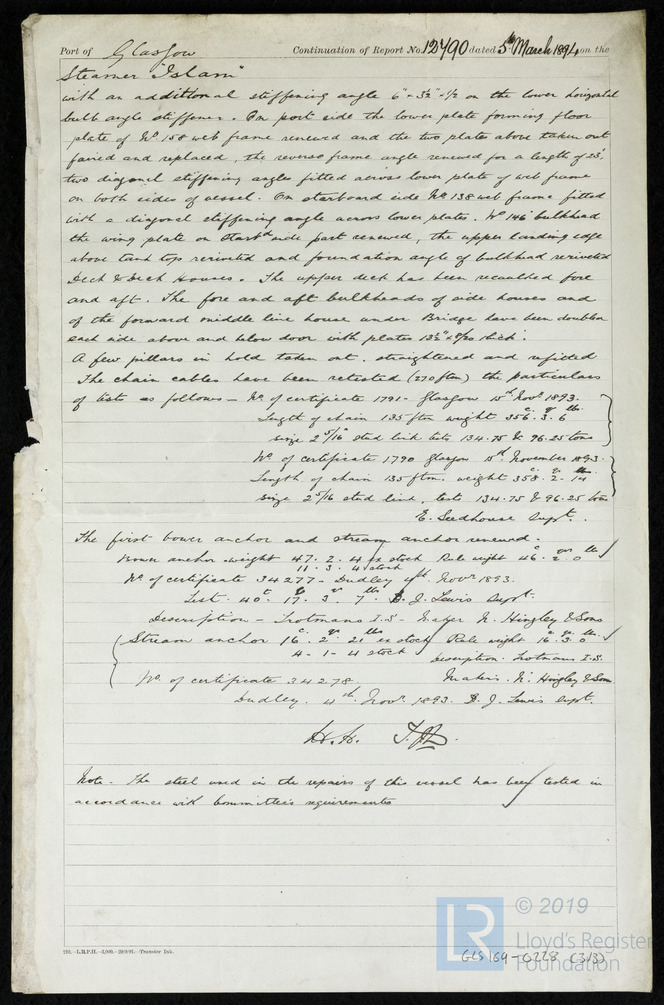 Port of Glasgow Continuation of Report No. 12490 dated 5th March 1894 on the
Steamer "Islam"
with an additional stiffening angle 6" x 3½" x ½ on the lower horizontal
bulb angle stiffener. On port side the lower plate forming floor
plate of No 158 web frame renewed and the two plates above taken out
faired and replaced, the reverse frame angle renewed for a length of 23',
two diagonal stiffening angles fitted across lower plate of web frame
on both sides of vessel. On starboard side No 138 web frame fitted
with a diagonal stiffening angle across lower plates. No 146 bulkhead
the wing plate on Starbd side part renewed, the upper landing edge
above tank top reriveted and foundation angle of bulkhead reriveted
Deck & Deck Houses. The upper deck has been recaulked fore
and aft. The fore and aft bulkheads of side houses and
of the forward middle line house under Bridge have been doubled
each side above and below door with plates 13½" x 8/20 thick.
A few pillars in hold taken out, straightened and refitted
The chain cables have been retested (270 ftm) the particulars
of tests as follows – No of certificate 1791 – Glasgow 15th Novr 1893.
Length of chain 135 ftm weight 356 c. 3 q. 6 lbs
size 2 5/16 stud link tests 134.75 & 96.25 tons
No of certificate 1790 Glasgow 15th November 1893.
Length of chain 135 ftm. weight 358 c. 2 q. 14 lbs
size 2 5/16 stud link, tests 134.75 & 96.25 tons
E. Seedhouse Supt.
The first bower anchor and stream anchor renewed.
Bower anchor weight 47. 2. 4 ex stock Rule weight 46 c. 2 qrs 0 lbs
11. 3. 4 stock
No of certificate 34277 – Dudley 4th Novr 1893.
Test. 40 t. 17 c. 3 q. 7 lbs. D. J. Lewis Supt.
Description – Trotmans I.S – Maker N. Hingley & Sons
Stream anchor 16 c. 2 qr. 21 lbs ex stock Rule weight 16 c. 3 qr. 0 lbs.
4 – 1 – 4 stock Description. Trotmans I.S.
No. of certificate 34278 Makers. N. Hingley & Sons
Dudley. 4th Novr 1893. D. J. Lewis Supt.
H. H.
Note – The steel used in the repairs of this vessel has been tested in
accordance with Committee's requirements
© 2019
LR
Lloyd's Register
Foundation
GLS/69-0228 (3/3)